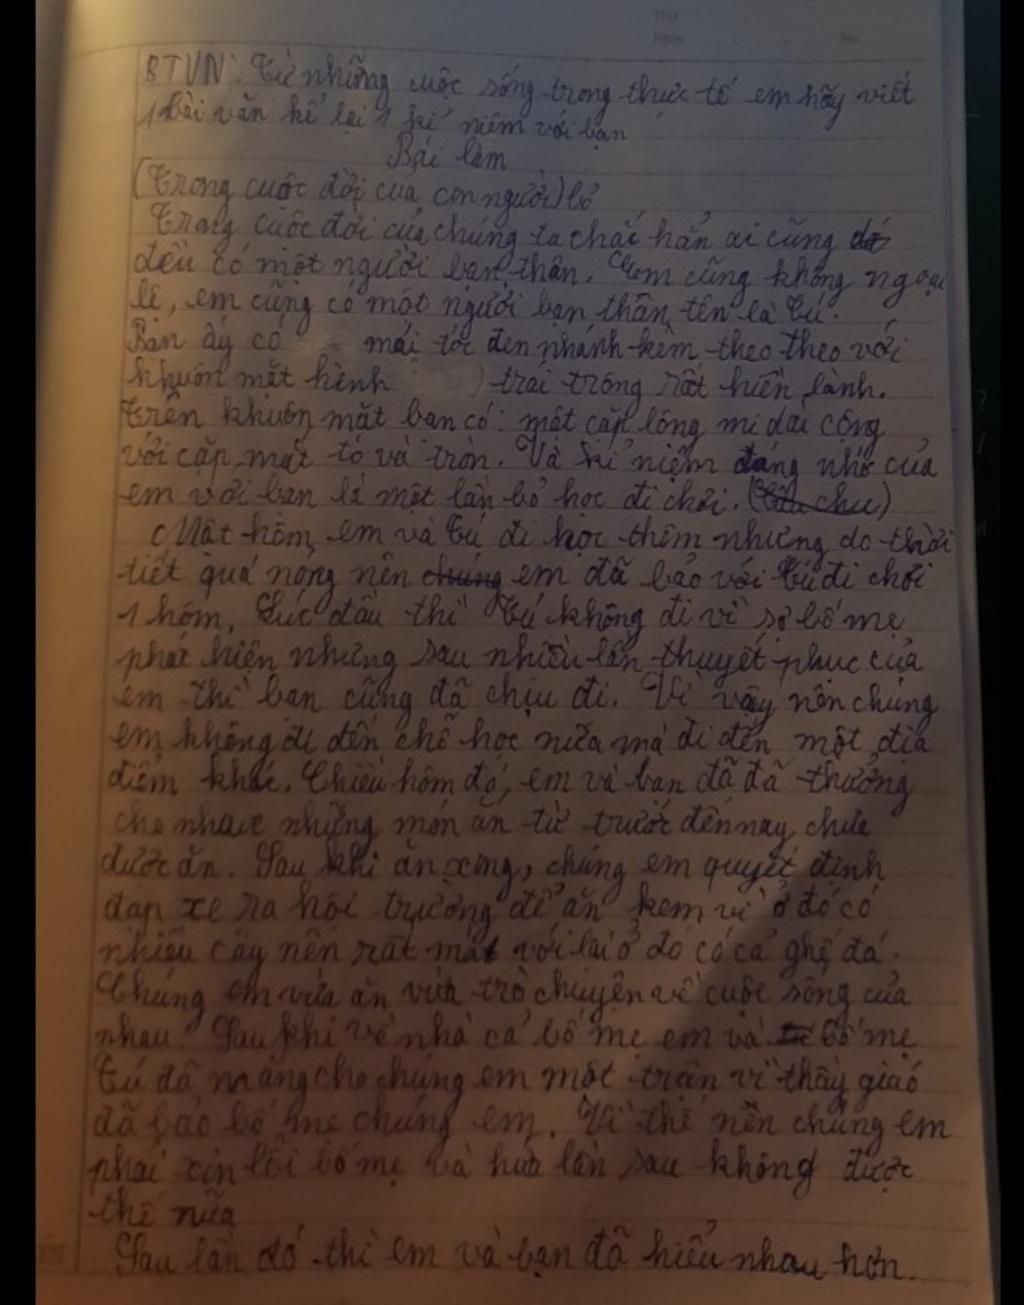 Thứ
Ngày No.
BTVN: Từ những cuộc sống trong thực tế em hãy viết
1 bài văn kể lại 1 kỉ niệm với bạn
Bài làm
(Trong cuộc đời của con người) bỏ
Trong cuộc đời của chúng ta chắc hẳn ai cũng
đều có một người bạn thân. Em cũng không ngoại
lệ, em cũng có một người bạn thân tên là Tú.
Bạn ấy có mái tóc đen nhánh kèm theo theo với
khuôn mặt hình trái trông rất hiền lành.
Trên khuôn mặt bạn có một cặp lông mi dài cong
với cặp mắt to và tròn. Và kỉ niệm đáng nhớ của
em với bạn là một lần bỏ học đi chơi.
Một hôm, em và Tú đi học thêm nhưng do thời
tiết quá nóng nên chúng em đã bảo với Tú đi chơi
1 hôm. Lúc đầu thì Tú không đi vì sợ bố mẹ
phát hiện nhưng sau nhiều lần thuyết phục của
em thì bạn cũng đã chịu đi. Vì vậy nên chúng
em không đi đến chỗ học nữa mà đi đến một địa
điểm khác. Chiều hôm đó, em và bạn đã đã thưởng
cho nhau những món ăn từ trước đến nay chưa
được ăn. Sau khi ăn xong, chúng em quyết định
đạp xe ra hội trường để ăn kem vì ở đó có
nhiều cây nên rất mát với lại ở đó có cả ghế đá.
Chúng em vừa ăn vừa trò chuyện về cuộc sống của
nhau. Sau khi về nhà cả bố mẹ em và bố mẹ
Tú đã mắng cho chúng em một trận vì thầy giáo
đã báo bố mẹ chúng em. Vì thế nên chúng em
phải xin lỗi bố mẹ và hứa lần sau không được
thế nữa
Sau lần đó thì em và bạn đã hiểu nhau hơn.